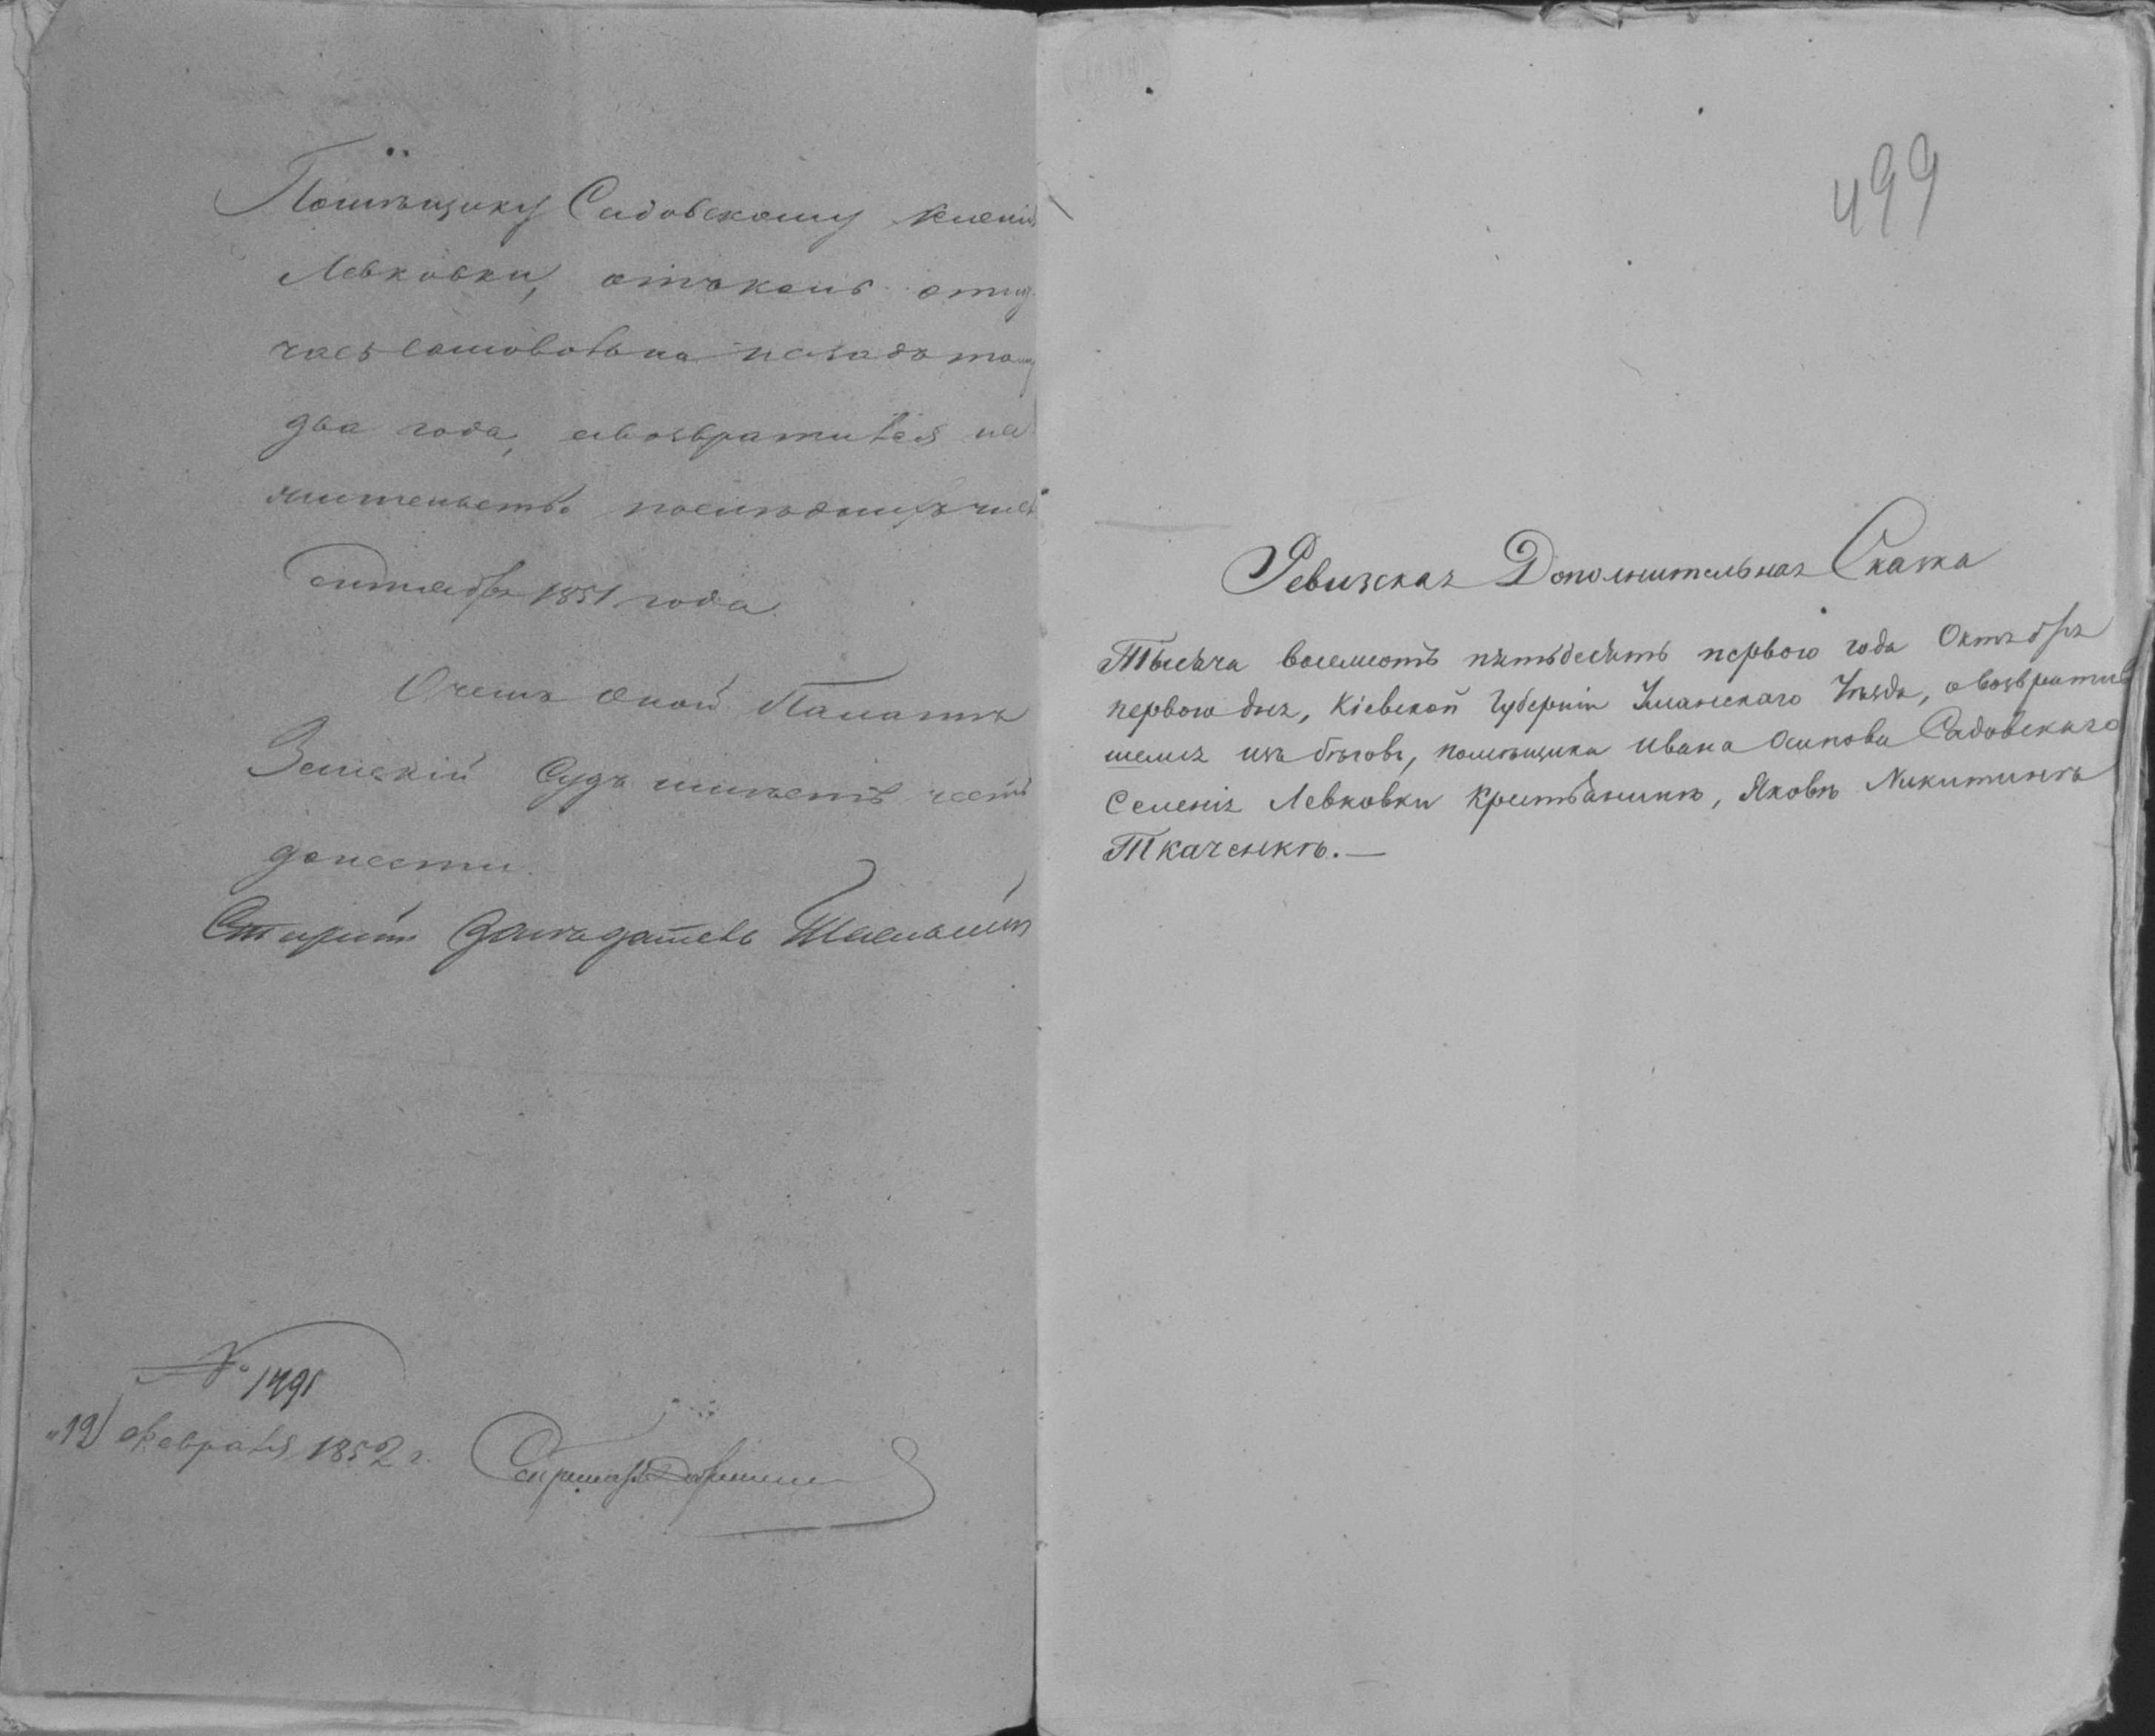 Помѣщику Садовскому
Левковки, отъколь отлу-
часъ самовольно назадъ тому
два года, а возвратился на
жительство въ послѣднихъ числ
Сентября 1851 года.
О чемъ оной Палатѣ
Земскій Судъ имѣетъ честь
донести.
Старшій Засѣдатель
№ 1491
"19" февраля 1852 г.
Секретарь
499
Ревизская Дополнительная Сказка
Тысяча восемсотъ пятьдесятъ первого года Октября
первого дня, Кіевской Губерніи Уманскаго Уѣзда, о возвратив
шемся изъ бѣговъ, помѣщика Ивана Осипова Садовскаго
Селенія Левковки Крестьянинѣ, Яковѣ Никитинѣ
Ткаченкѣ.—